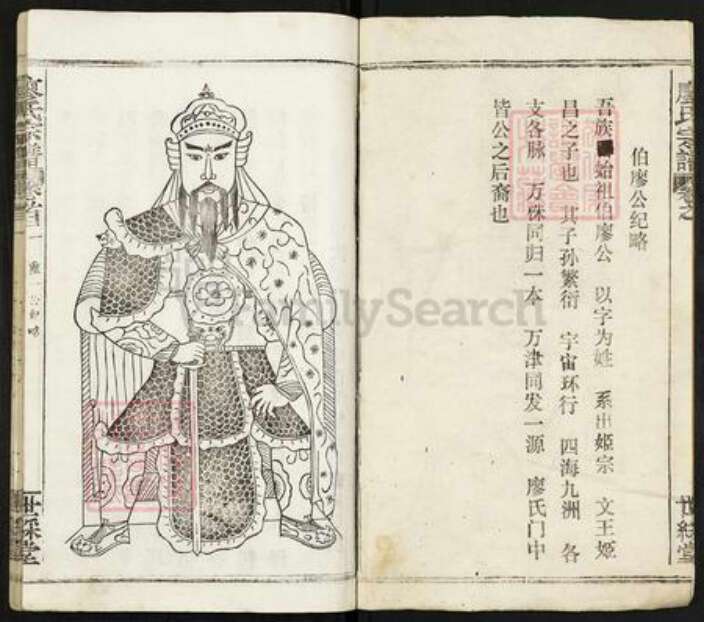 廖氏宗譜
卷之
世綵堂
伯廖公纪略
吾族 始祖伯廖公 以字为姓 系出姬宗 文王姬
昌之子也 其子孙繁衍 宇宙环行 四海九洲 各
支各脉 万殊同归一本 万津同发一源 廖氏门中
皆公之后裔也
廖氏宗譜
世綵堂
FamilySearch